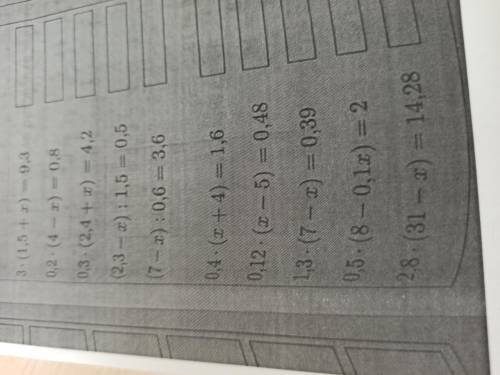 3 · (1,5 + x) = 9,3
0,2 · (4 − x) = 0,8
0,3 · (2,4 + x) = 4,2
(2,3 − x) : 1,5 = 0,5
(7 − x) : 0,6 = 3,6
0,4 · (x + 4) = 1,6
0,12 · (x − 5) = 0,48
1,3 · (7 − x) = 0,39
0,5 · (8 − 0,1x) = 2
2,8 · (31 − x) = 14,28